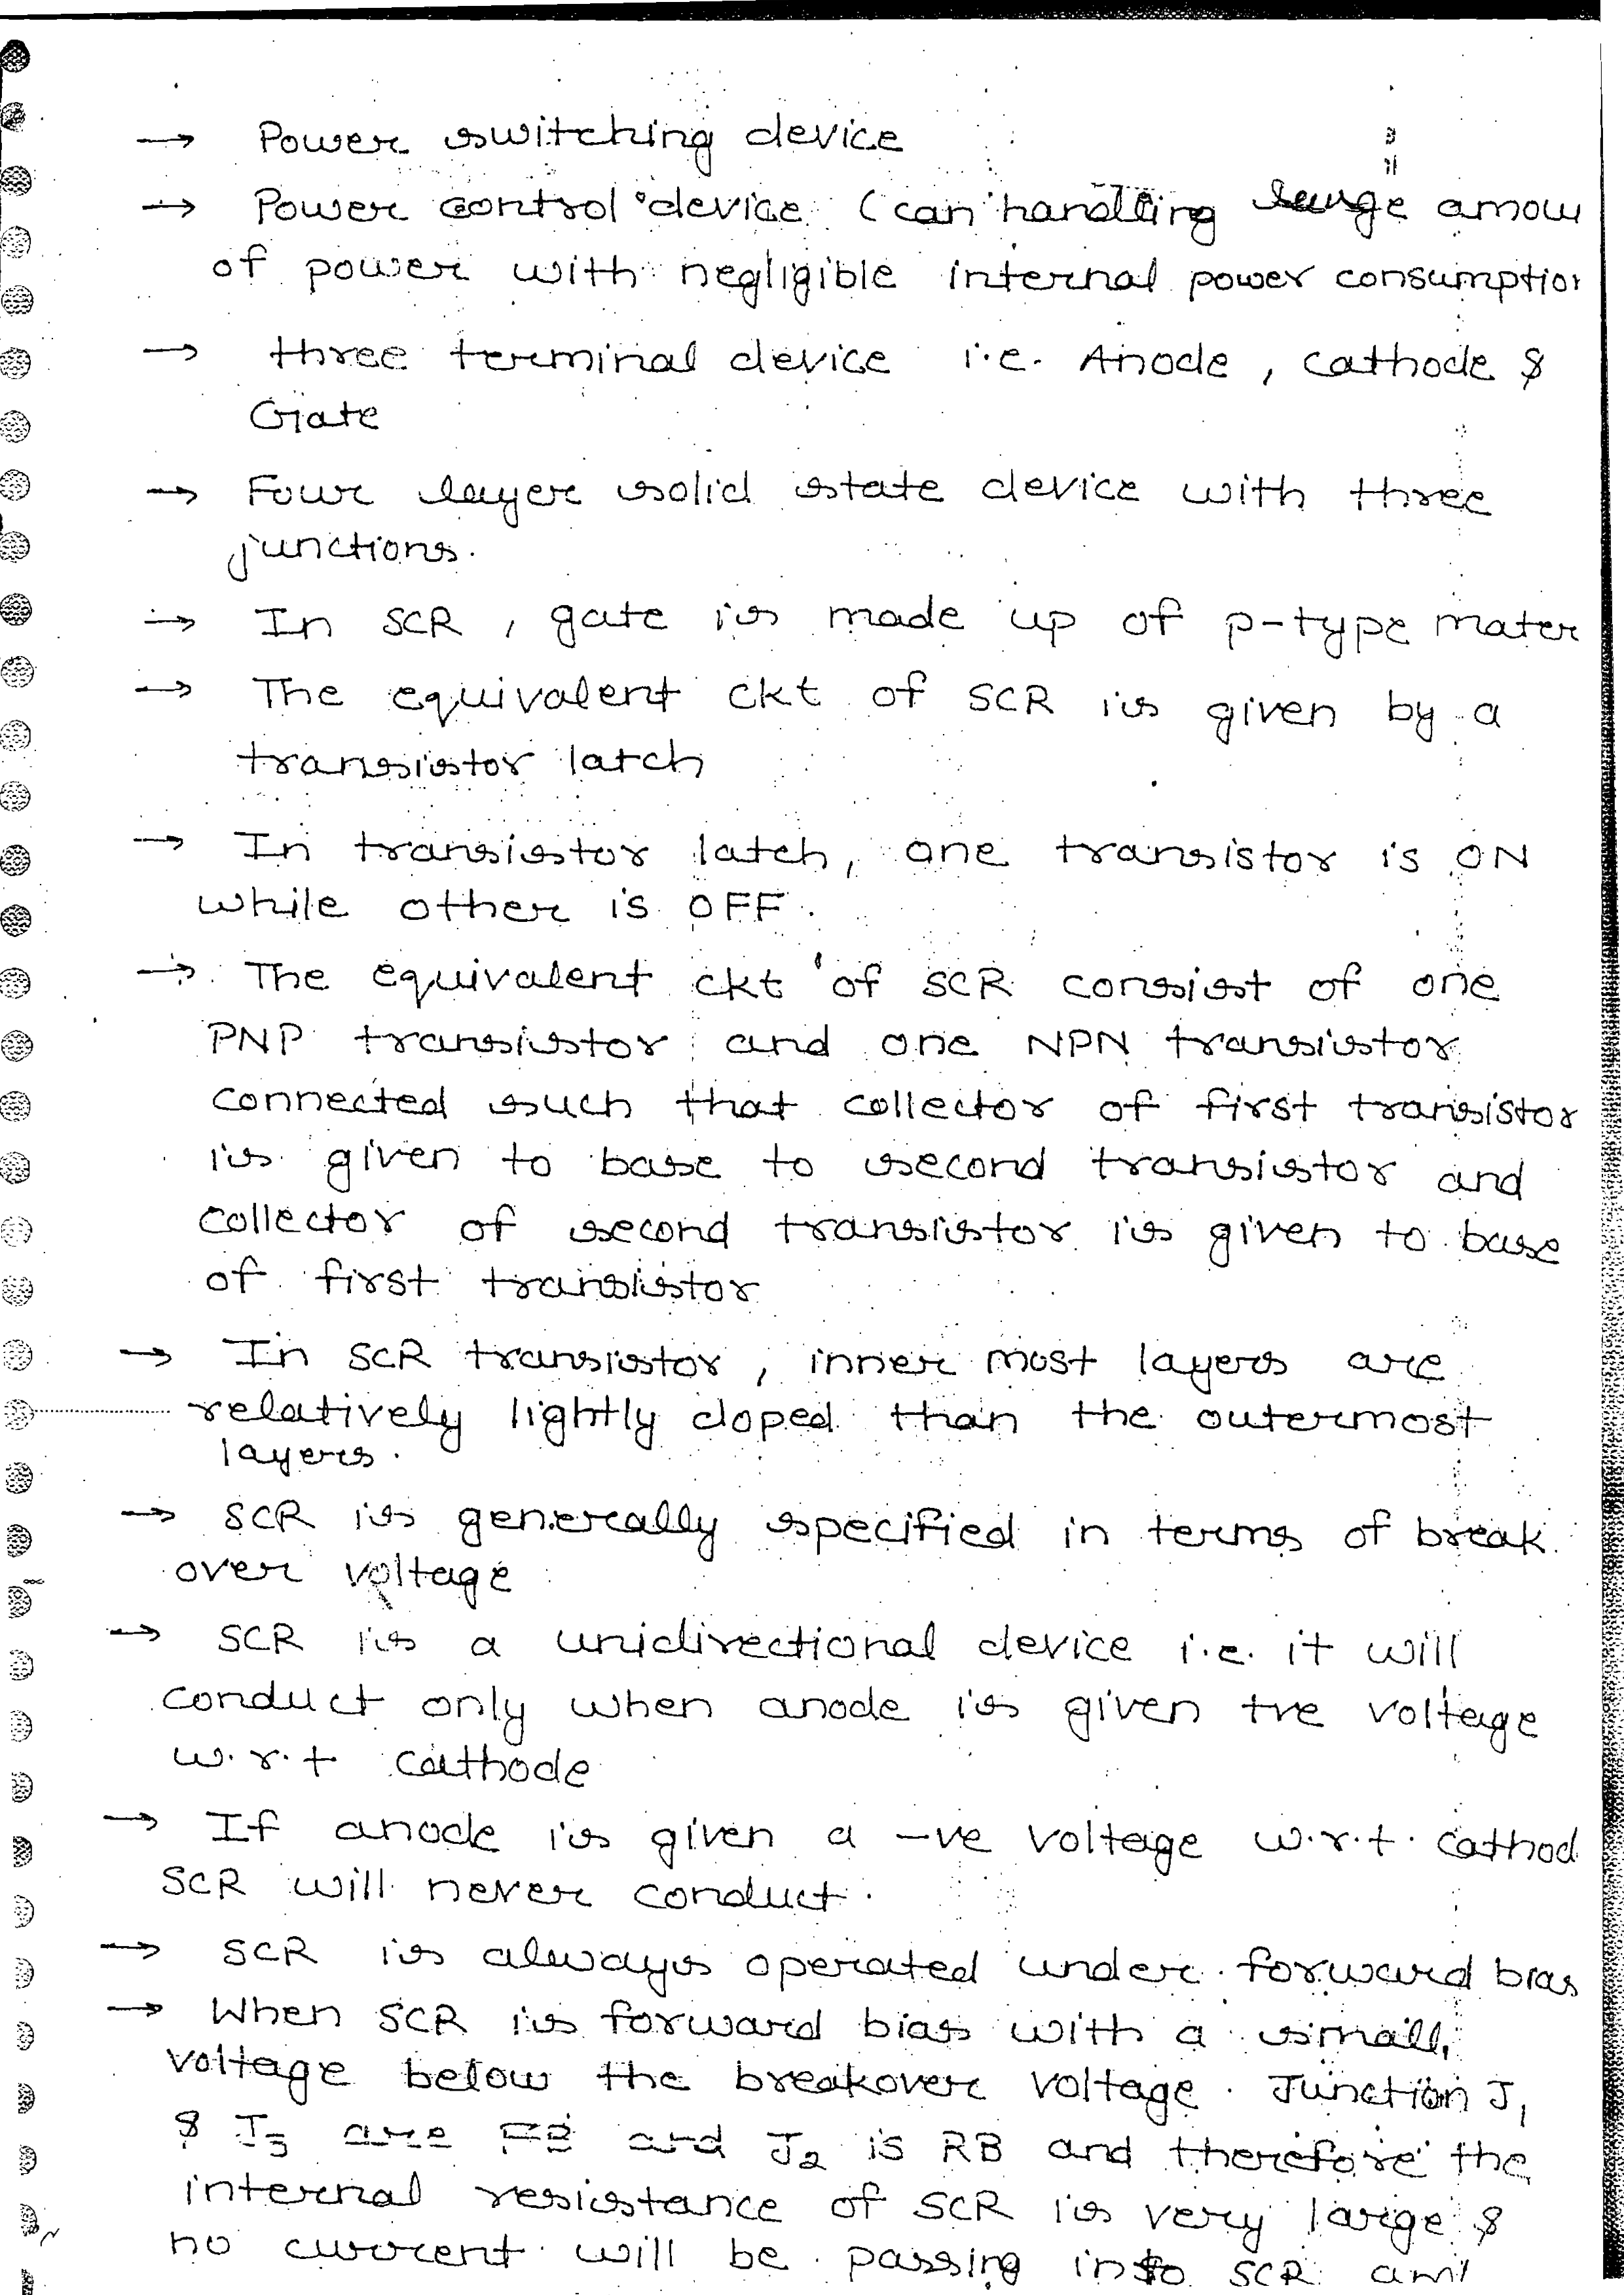 → Power switching device
→ Power control device (can handling large amou
of power with negligible internal power consumption
→ three terminal device i.e. Anode, cathode &
Gate
→ Four layer solid state device with three
junctions.
→ In SCR, gate is made up of p-type mater
→ The equivalent ckt of SCR is given by a
transistor latch
→ In transistor latch, one transistor is ON
while other is OFF.
→ The equivalent ckt of SCR consist of one
PNP transistor and one NPN transistor
connected such that collector of first transistor
is given to base to second transistor and
collector of second transistor is given to base
of first transistor
→ In SCR transistor, inner most layers are
relatively lightly doped than the outermost
layers.
→ SCR is generally specified in terms of break
over voltage
→ SCR is a unidirectional device i.e. it will
conduct only when anode is given +ve voltage
w.r.t cathode
→ If anode is given a -ve voltage w.r.t. cathod
SCR will never conduct.
→ SCR is always operated under forward bias
→ When SCR is forward bias with a small
voltage below the breakover voltage. Junction J1
& J3 are FB and J2 is RB and therefore the
internal resistance of SCR is very large &
no current will be passing into SCR and